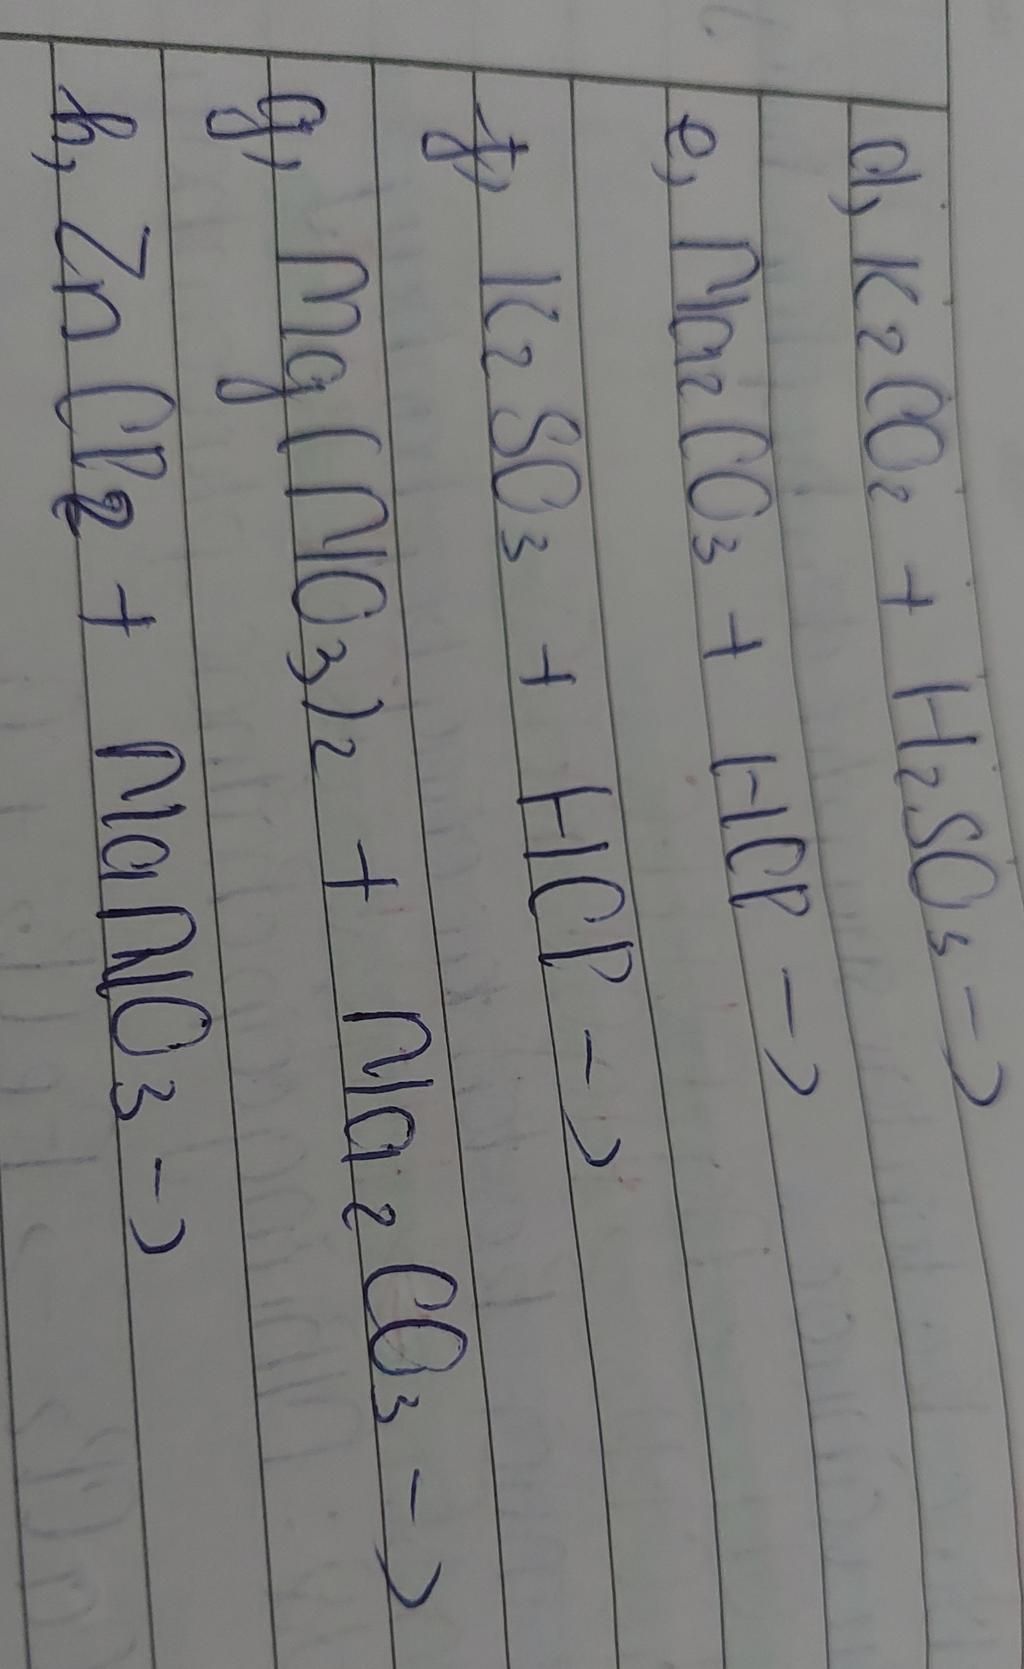 d, K₂CO₂ + H₂SO₃ →
e, Na₂CO₃ + HCl →
f, K₂SO₃ + HCl →
g, Mg(NO₃)₂ + Na₂CO₃ →
h, ZnCl₂ + NaNO₃ →